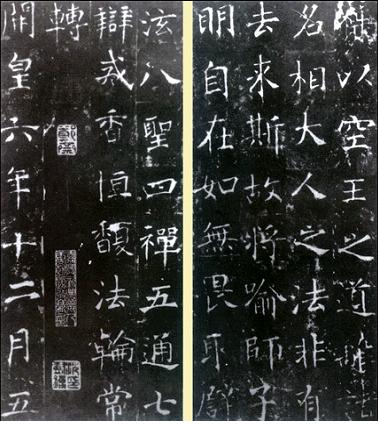 以空王之道離諸
名相大人之法非有
去來斯故將喻師子
眀自在如無畏取譬
泫八聖四禪五通七
辯戒香恒馥法輪常
轉
開皇六年十二月五